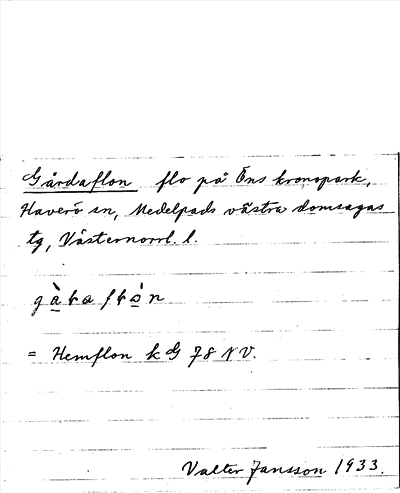 Gårdaflon flo på Öns kronopark,
Haverö sn, Medelpads västra domsagas
tg, Västernorrl. l.
= Hemflon k G 78 NV.
Valter Jansson 1933.